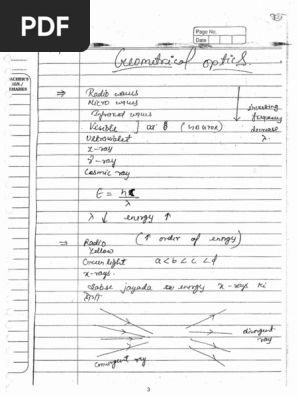 PDF
Page No.
Date
Geometrical optics.
TEACHER'S
SIGN /
REMARKS
⇒ Radio waves
Micro waves
Infrared waves
Visible
Ultraviolet
x-ray
γ-ray
Cosmic ray
increasing
frequency
decrease
λ.
E = hc
λ
λ ↓ energy ↑
⇒ Radio (↑ order of energy)
Yellow
Green light a < b < c < d
x-rays.
jayada energy x-rays ki
divergent
ray
convergent ray
3